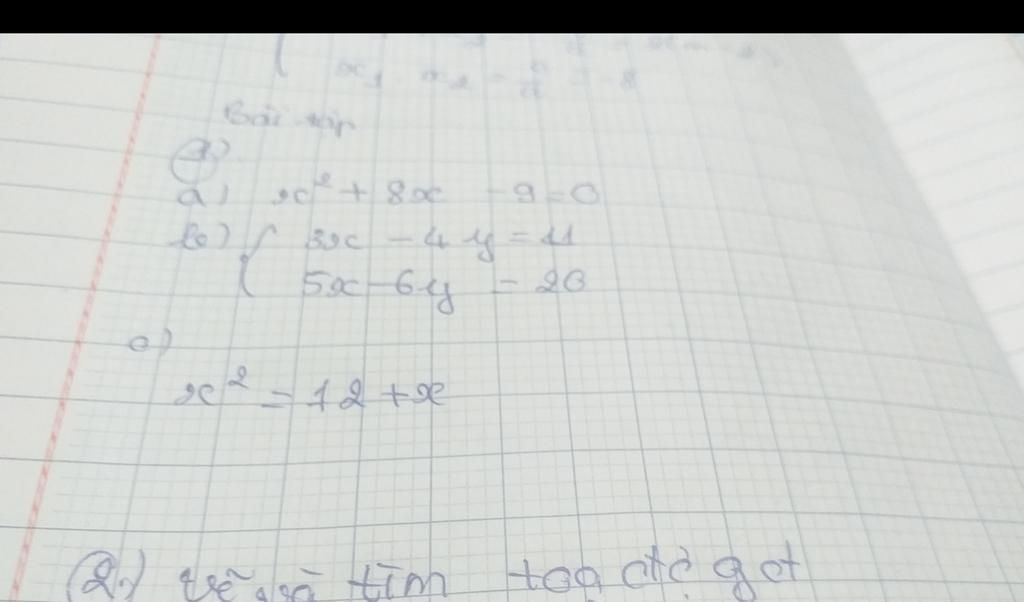 x₁ x₂ = = - 8
Bài tập
a) x² + 8x - 9 = 0
b) { 3x - 4y = 11
5x - 6y = 20
c)
x² = 12 + x
(2.) vẽ và tìm toạ độ